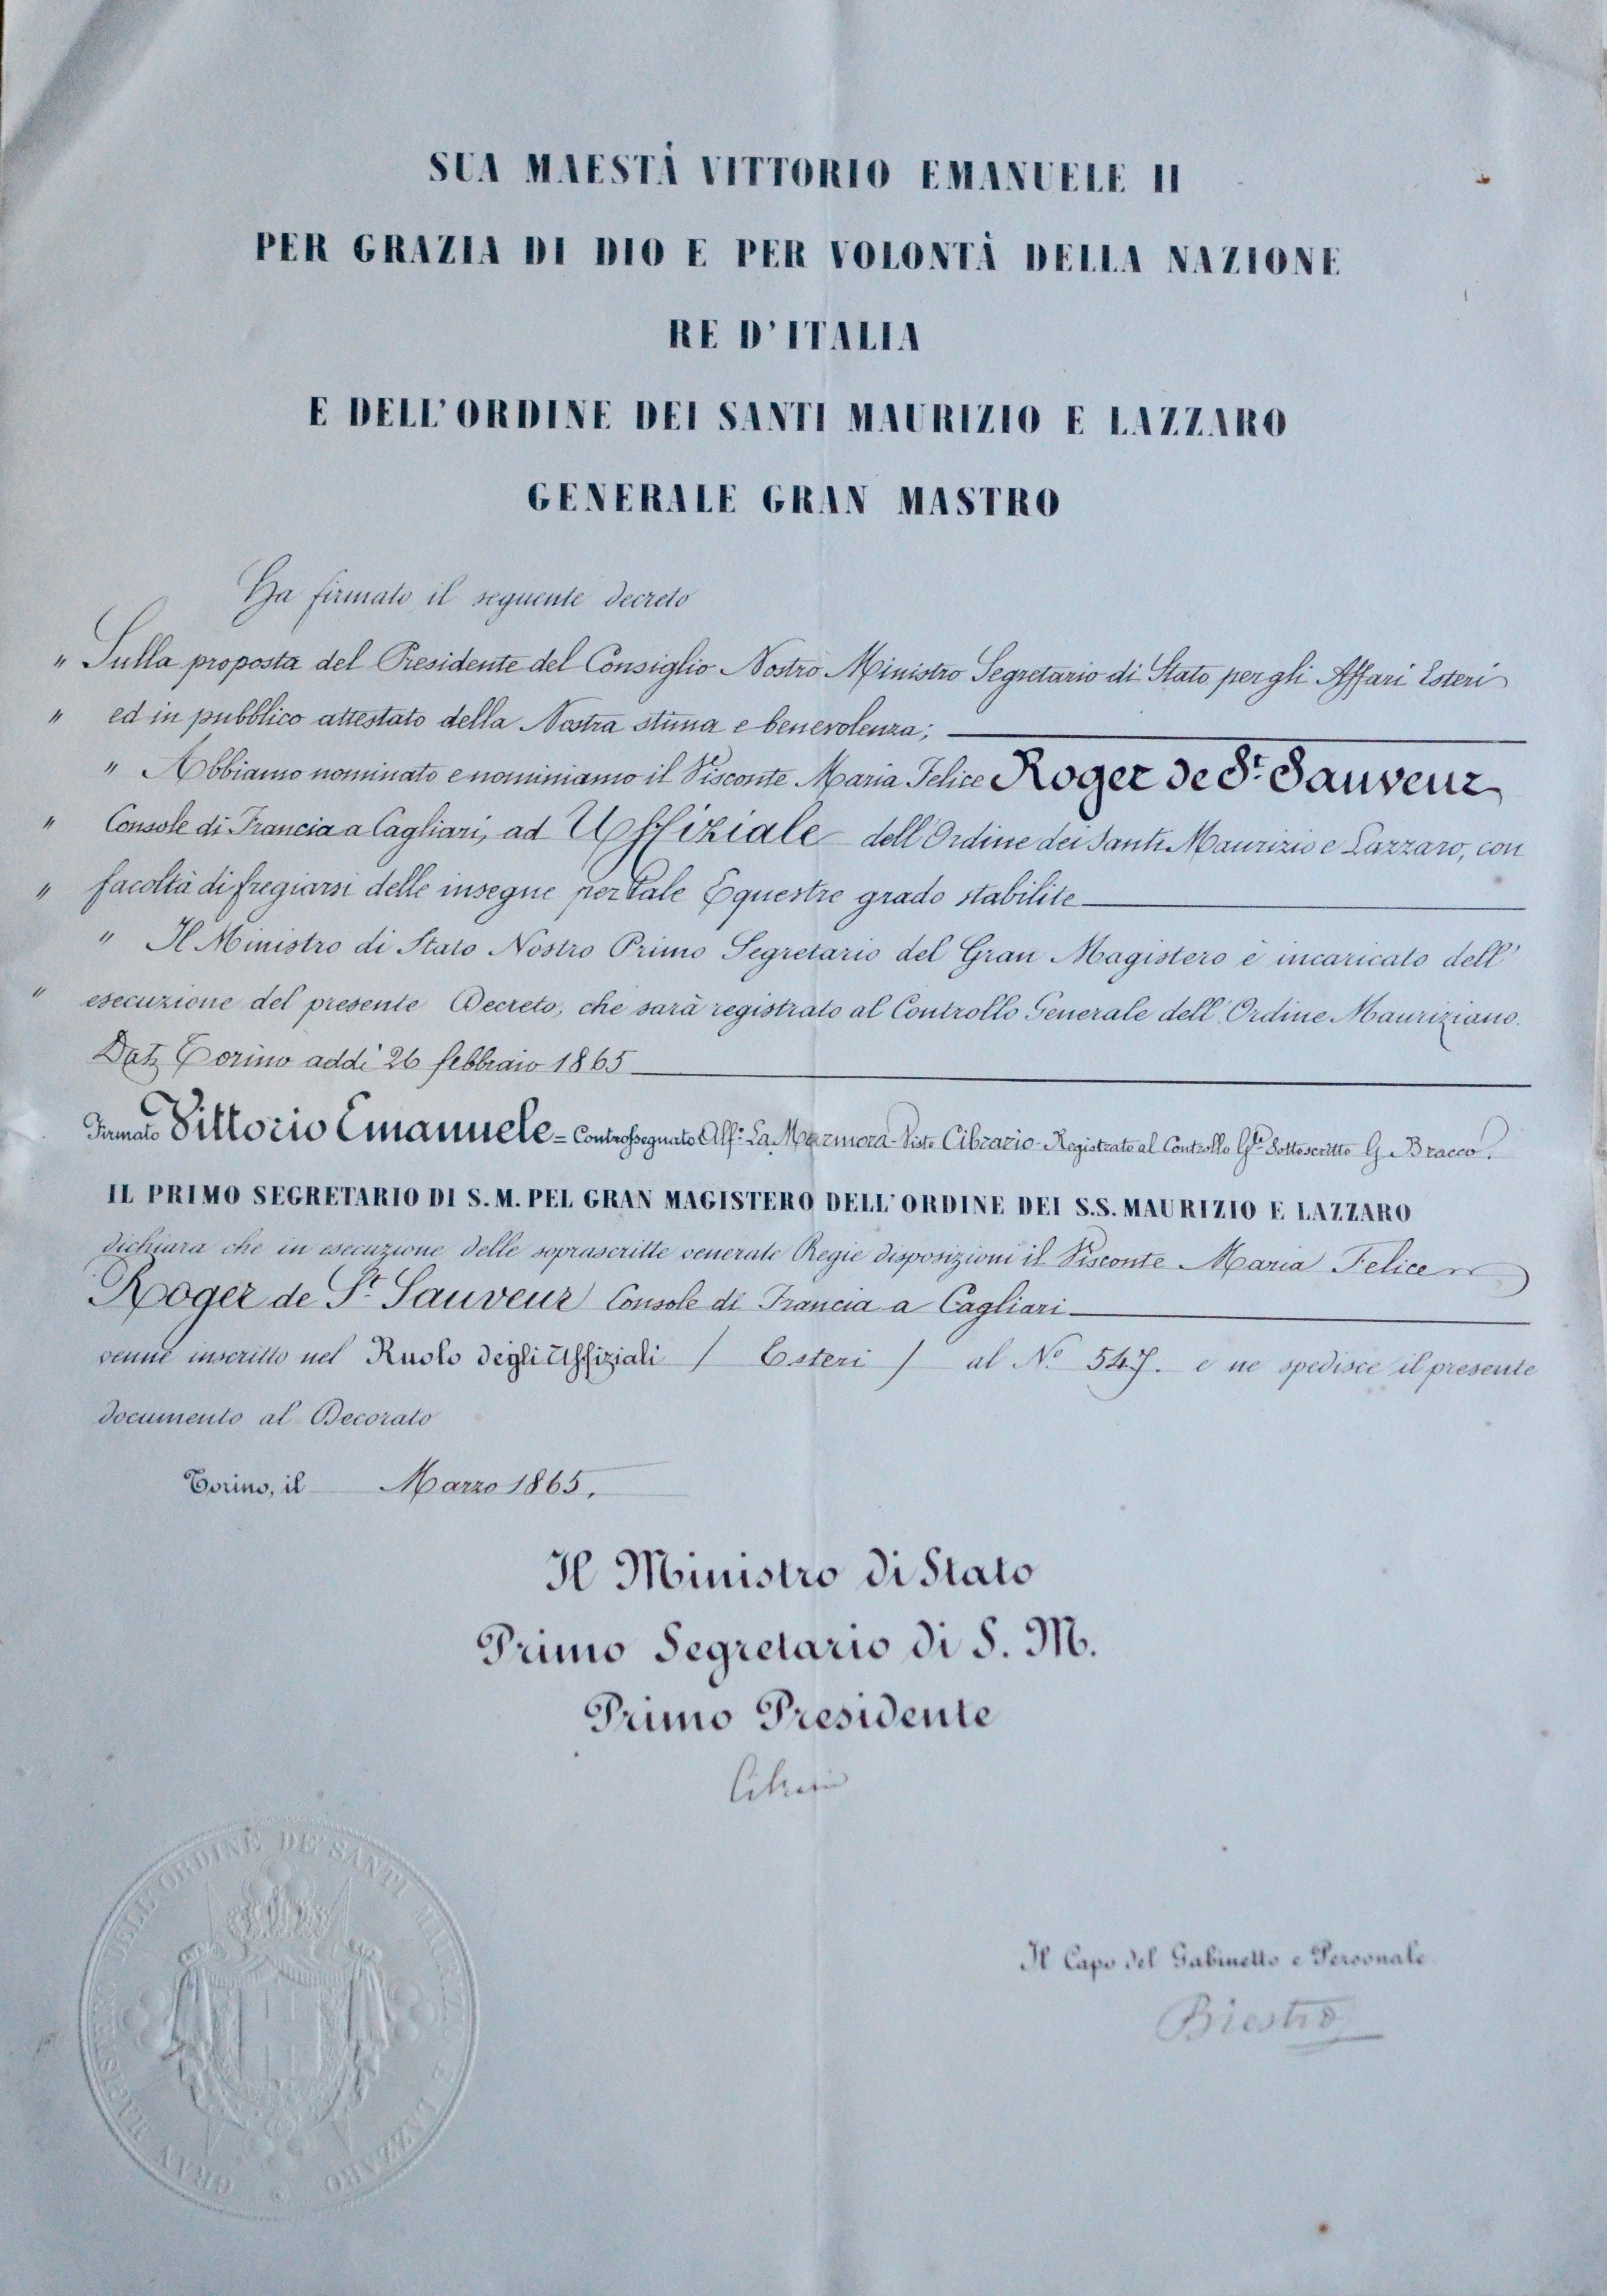 SUA MAESTÀ VITTORIO EMANUELE II
PER GRAZIA DI DIO E PER VOLONTÀ DELLA NAZIONE
RE D'ITALIA
E DELL'ORDINE DEI SANTI MAURIZIO E LAZZARO
GENERALE GRAN MASTRO
Ha firmato il seguente decreto
" Sulla proposta del Presidente del Consiglio Nostro Ministro Segretario di Stato per gli Affari Esteri
" ed in pubblico attestato della Nostra stima e benevolenza;
" Abbiamo nominato e nominiamo il Visconte Maria Felice Roger de St. Sauveur,
" Console di Francia a Cagliari, ad Uffiziale dell'Ordine dei Santi Maurizio e Lazzaro, con
" facoltà di fregiarsi delle insegne per tale Equestre grado stabilite
" Il Ministro di Stato Nostro Primo Segretario del Gran Magistero è incaricato dell'
" esecuzione del presente Decreto, che sarà registrato al Controllo Generale dell'Ordine Mauriziano.
Dat. Torino addì 26 febbraio 1865
Firmato Vittorio Emanuele = Controssegnato Alf.° La Marmora - Visto Cibrario - Registrato al Controllo G.le Sottoscritto G. Bracco.
IL PRIMO SEGRETARIO DI S. M. PEL GRAN MAGISTERO DELL'ORDINE DEI S.S. MAURIZIO E LAZZARO
dichiara che in esecuzione delle soprascritte venerate Regie disposizioni il Visconte Maria Felice
Roger de St. Sauveur Console di Francia a Cagliari
venne inscritto nel Ruolo degli Uffiziali / Esteri / al N.° 547. e ne spedisce il presente
documento al Decorato
Torino, il Marzo 1865.
Il Ministro di Stato
Primo Segretario di S. M.
Primo Presidente
Cibrario
GRAN MAGISTERO DELL'ORDINE DE' SANTI MAURIZIO E LAZZARO
Il Capo del Gabinetto e Personale
Biestro